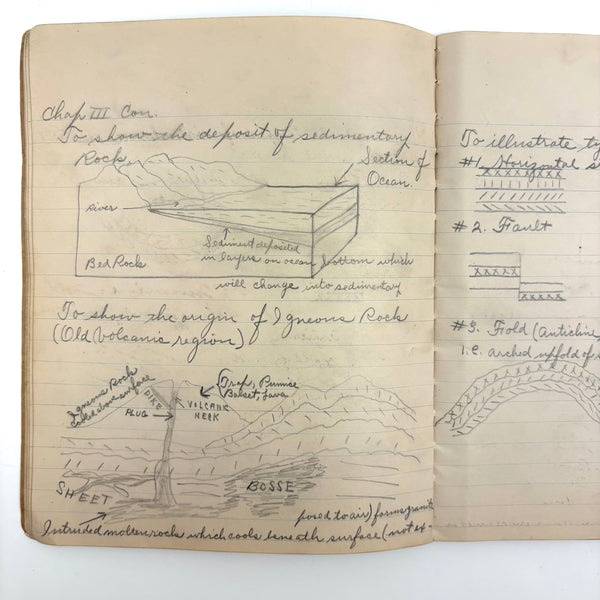 Chap III Con.
To show the deposit of sedimentary
Rock.
Section of
Ocean.
River
Sediment deposited
in layers on ocean bottom which
Bed Rock
will change into sedimentary
To show the origin of Igneous Rock
(Old Volcanic region)
Igneous Rock
cooled above surface
DIKE
PLUG
VOLCANIC
NECK
Trap, Pumice
Lava
SHEET
BOSSE
posed to air) forms granite
Intruded molten rocks which cools beneath surface (not ex-
To illustrate ty
#1. Horizontal s
#2. Fault
#3. Fold (Anticline,
i.e. arched upfold of s